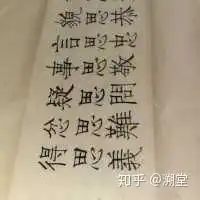 貌思恭
言思忠
事思敬
疑思問
忿思難
得思義
知乎 @溯堂